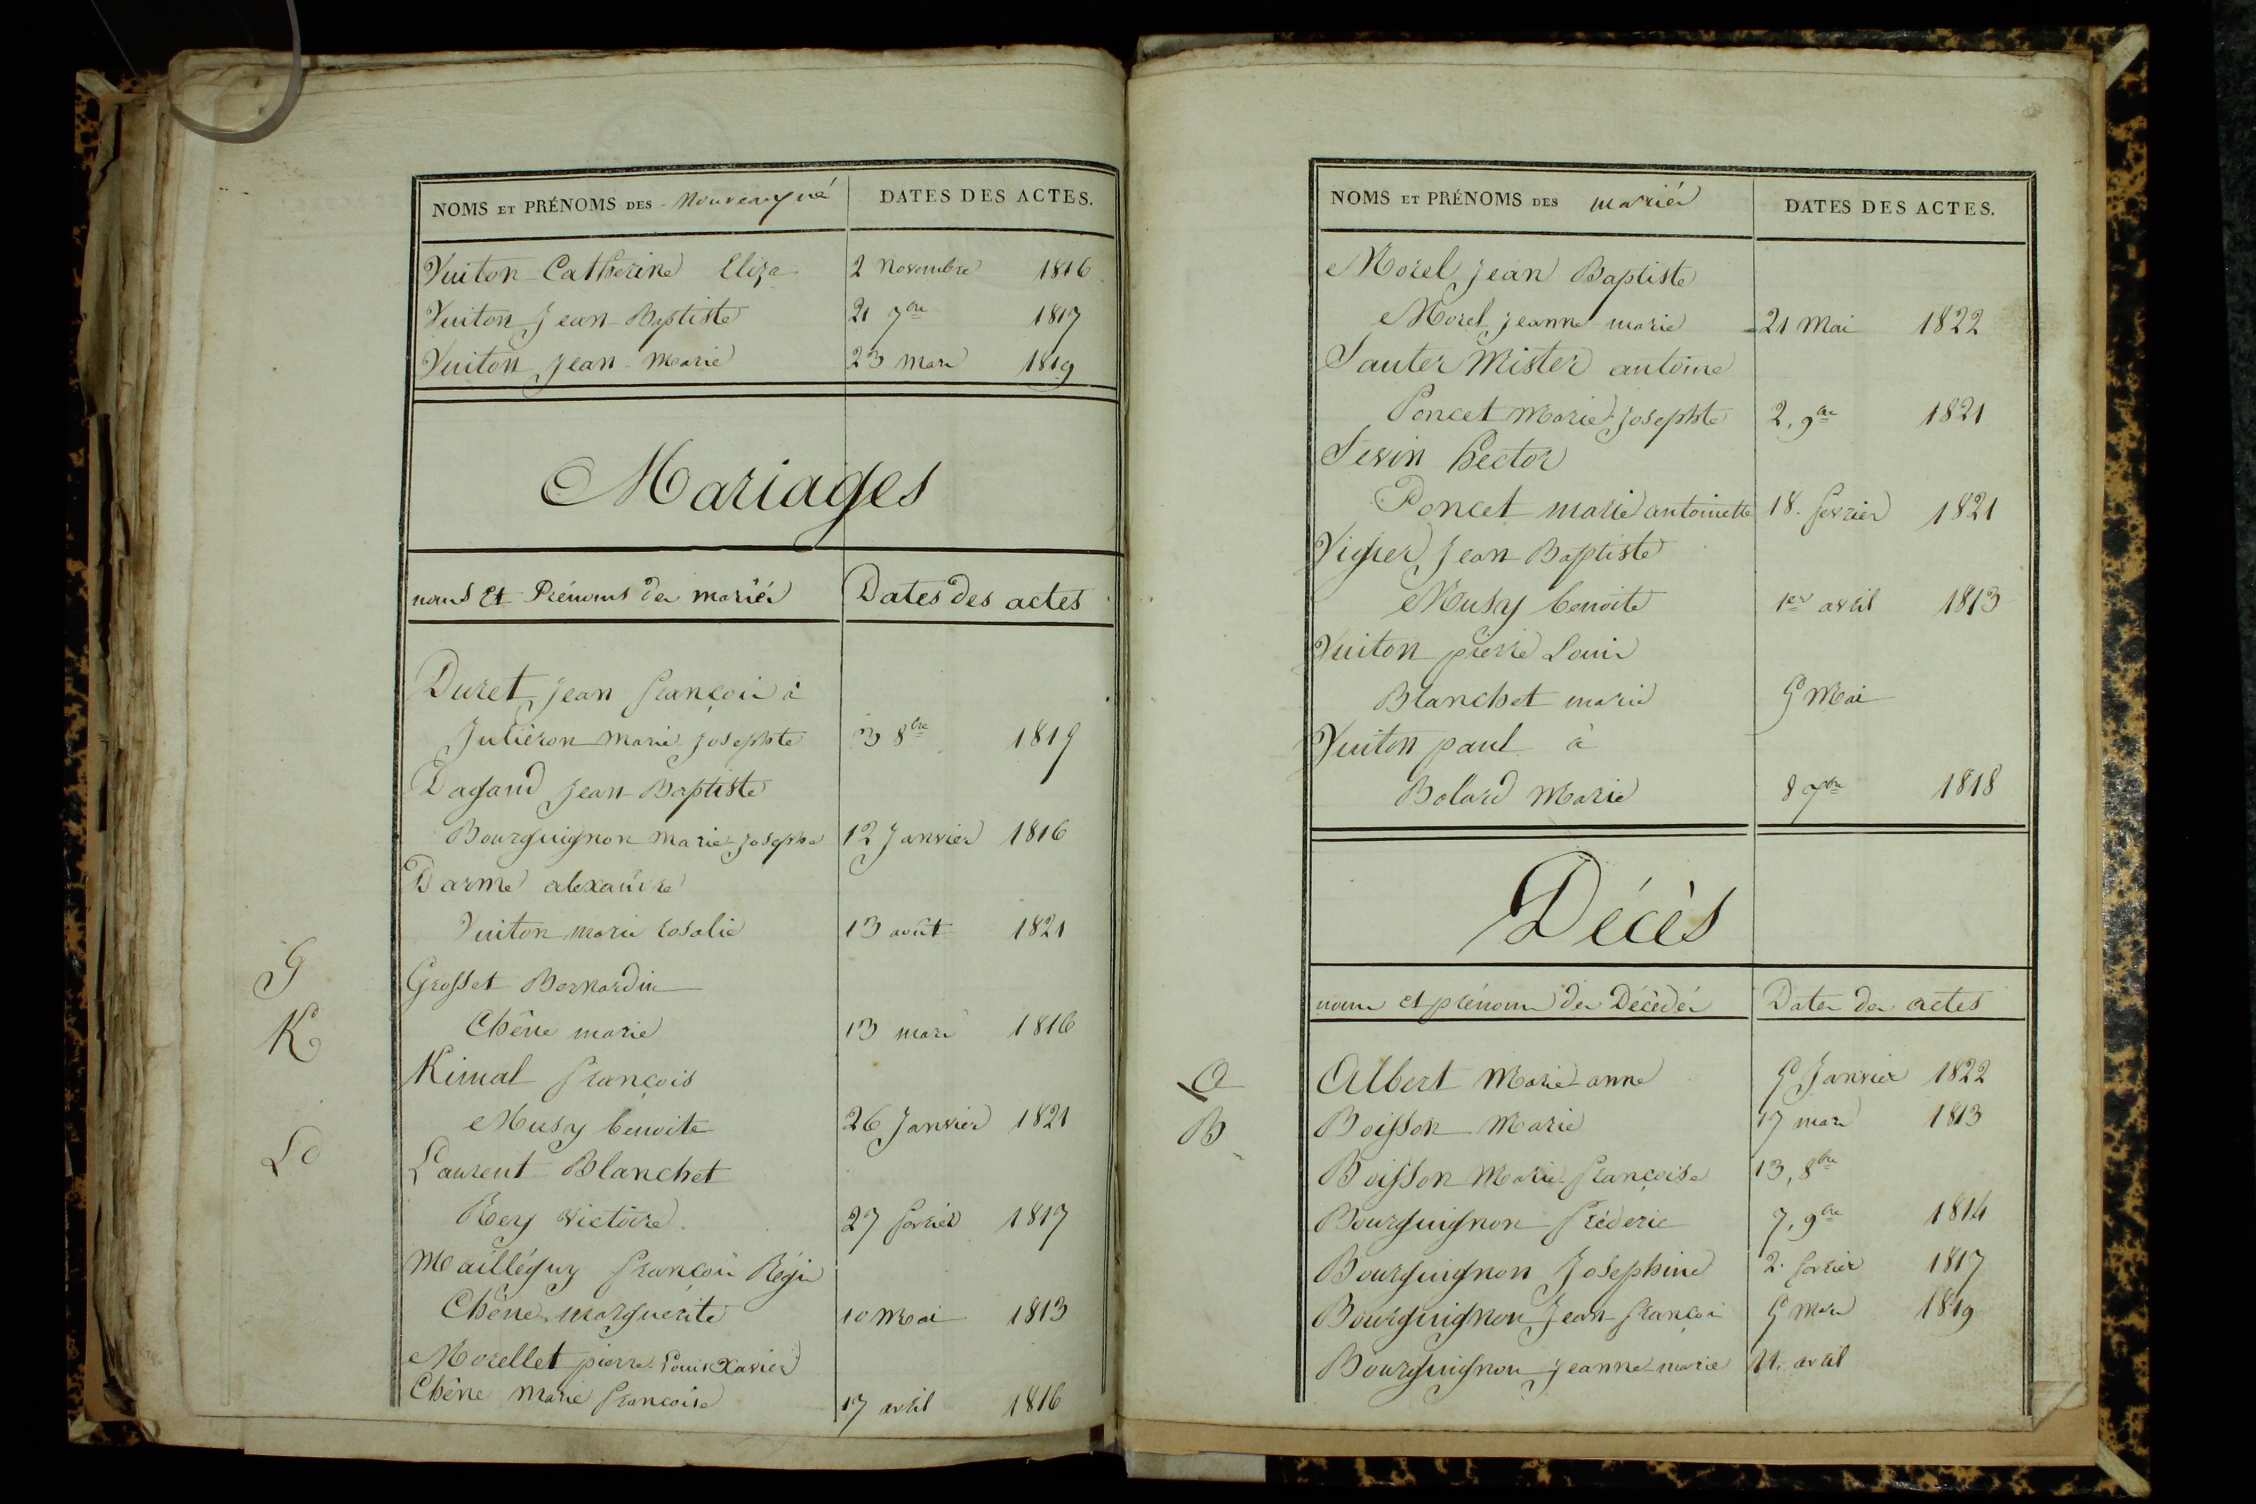 NOMS ET PRÉNOMS DES Nouveaux né DATES DES ACTES.
Vuiton Catherine Eliza 2 Novembre 1816
Vuiton Jean Baptiste 21 7bre 1817
Vuiton Jean Marie 23 Mars 1819
Mariages
noms Et Prénoms des mariés Dates des actes
Duret Jean françois à
Julieron Marie Josephte 3 8bre 1819
Dagand Jean Baptiste
Bourguignon Marie Josephe 12 Janvier 1816
Darme alexandre
Vuiton marie rosalie 13 août 1821
G
Grosset Bernardin
K
Chêne marie 13 mars 1816
Kimal françois
Musy benoite 26 Janvier 1821
L
Laurent Blanchet
Rey victoire 27 février 1817
Mailléguy françois Régis
Chêne marguerite 10 Mai 1813
Morellet pierre Louis Xavier
Chêne Marie françoise 17 avril 1816
NOMS ET PRÉNOMS DES mariés DATES DES ACTES.
Morel Jean Baptiste
Morel Jeanne marie 21 Mai 1822
Sauter Mister antoine
Poncet Marie Josephte 2, 9bre 1821
Sevin hector
Poncet marie antoinette 18. fevrier 1821
Vigner Jean Baptiste
Musy benoite 1er avril 1813
Vuiton pierre Louis
Blanchet marie 9 Mai
Vuiton paul à
Bolard Marie 8 7bre 1818
Décès
noms et prénoms des Décédés Dates des actes
A
Albert Marie anne 9 Janvier 1822
B
Boisson Marie 17 mars 1813
Boisson Marie françoise 13, 8bre
Bourguignon fréderic 7, 9bre 1814
Bourguignon Josephine 2. fevrier 1817
Bourguignon Jean françois 9 Mars 1819
Bourguignon Jeanne marie 11. avril